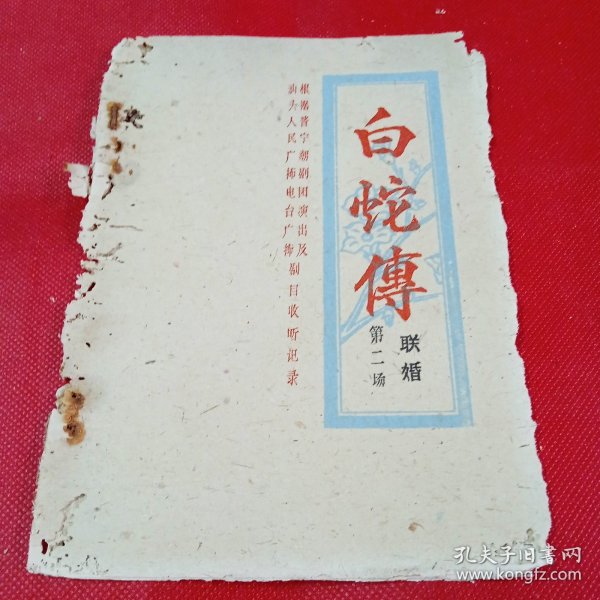 白蛇傳
联婚
第二场
根据普宁潮剧团演出及
汕头人民广播电台广播剧目收听记录
孔夫子旧书网
www.kongfz.com